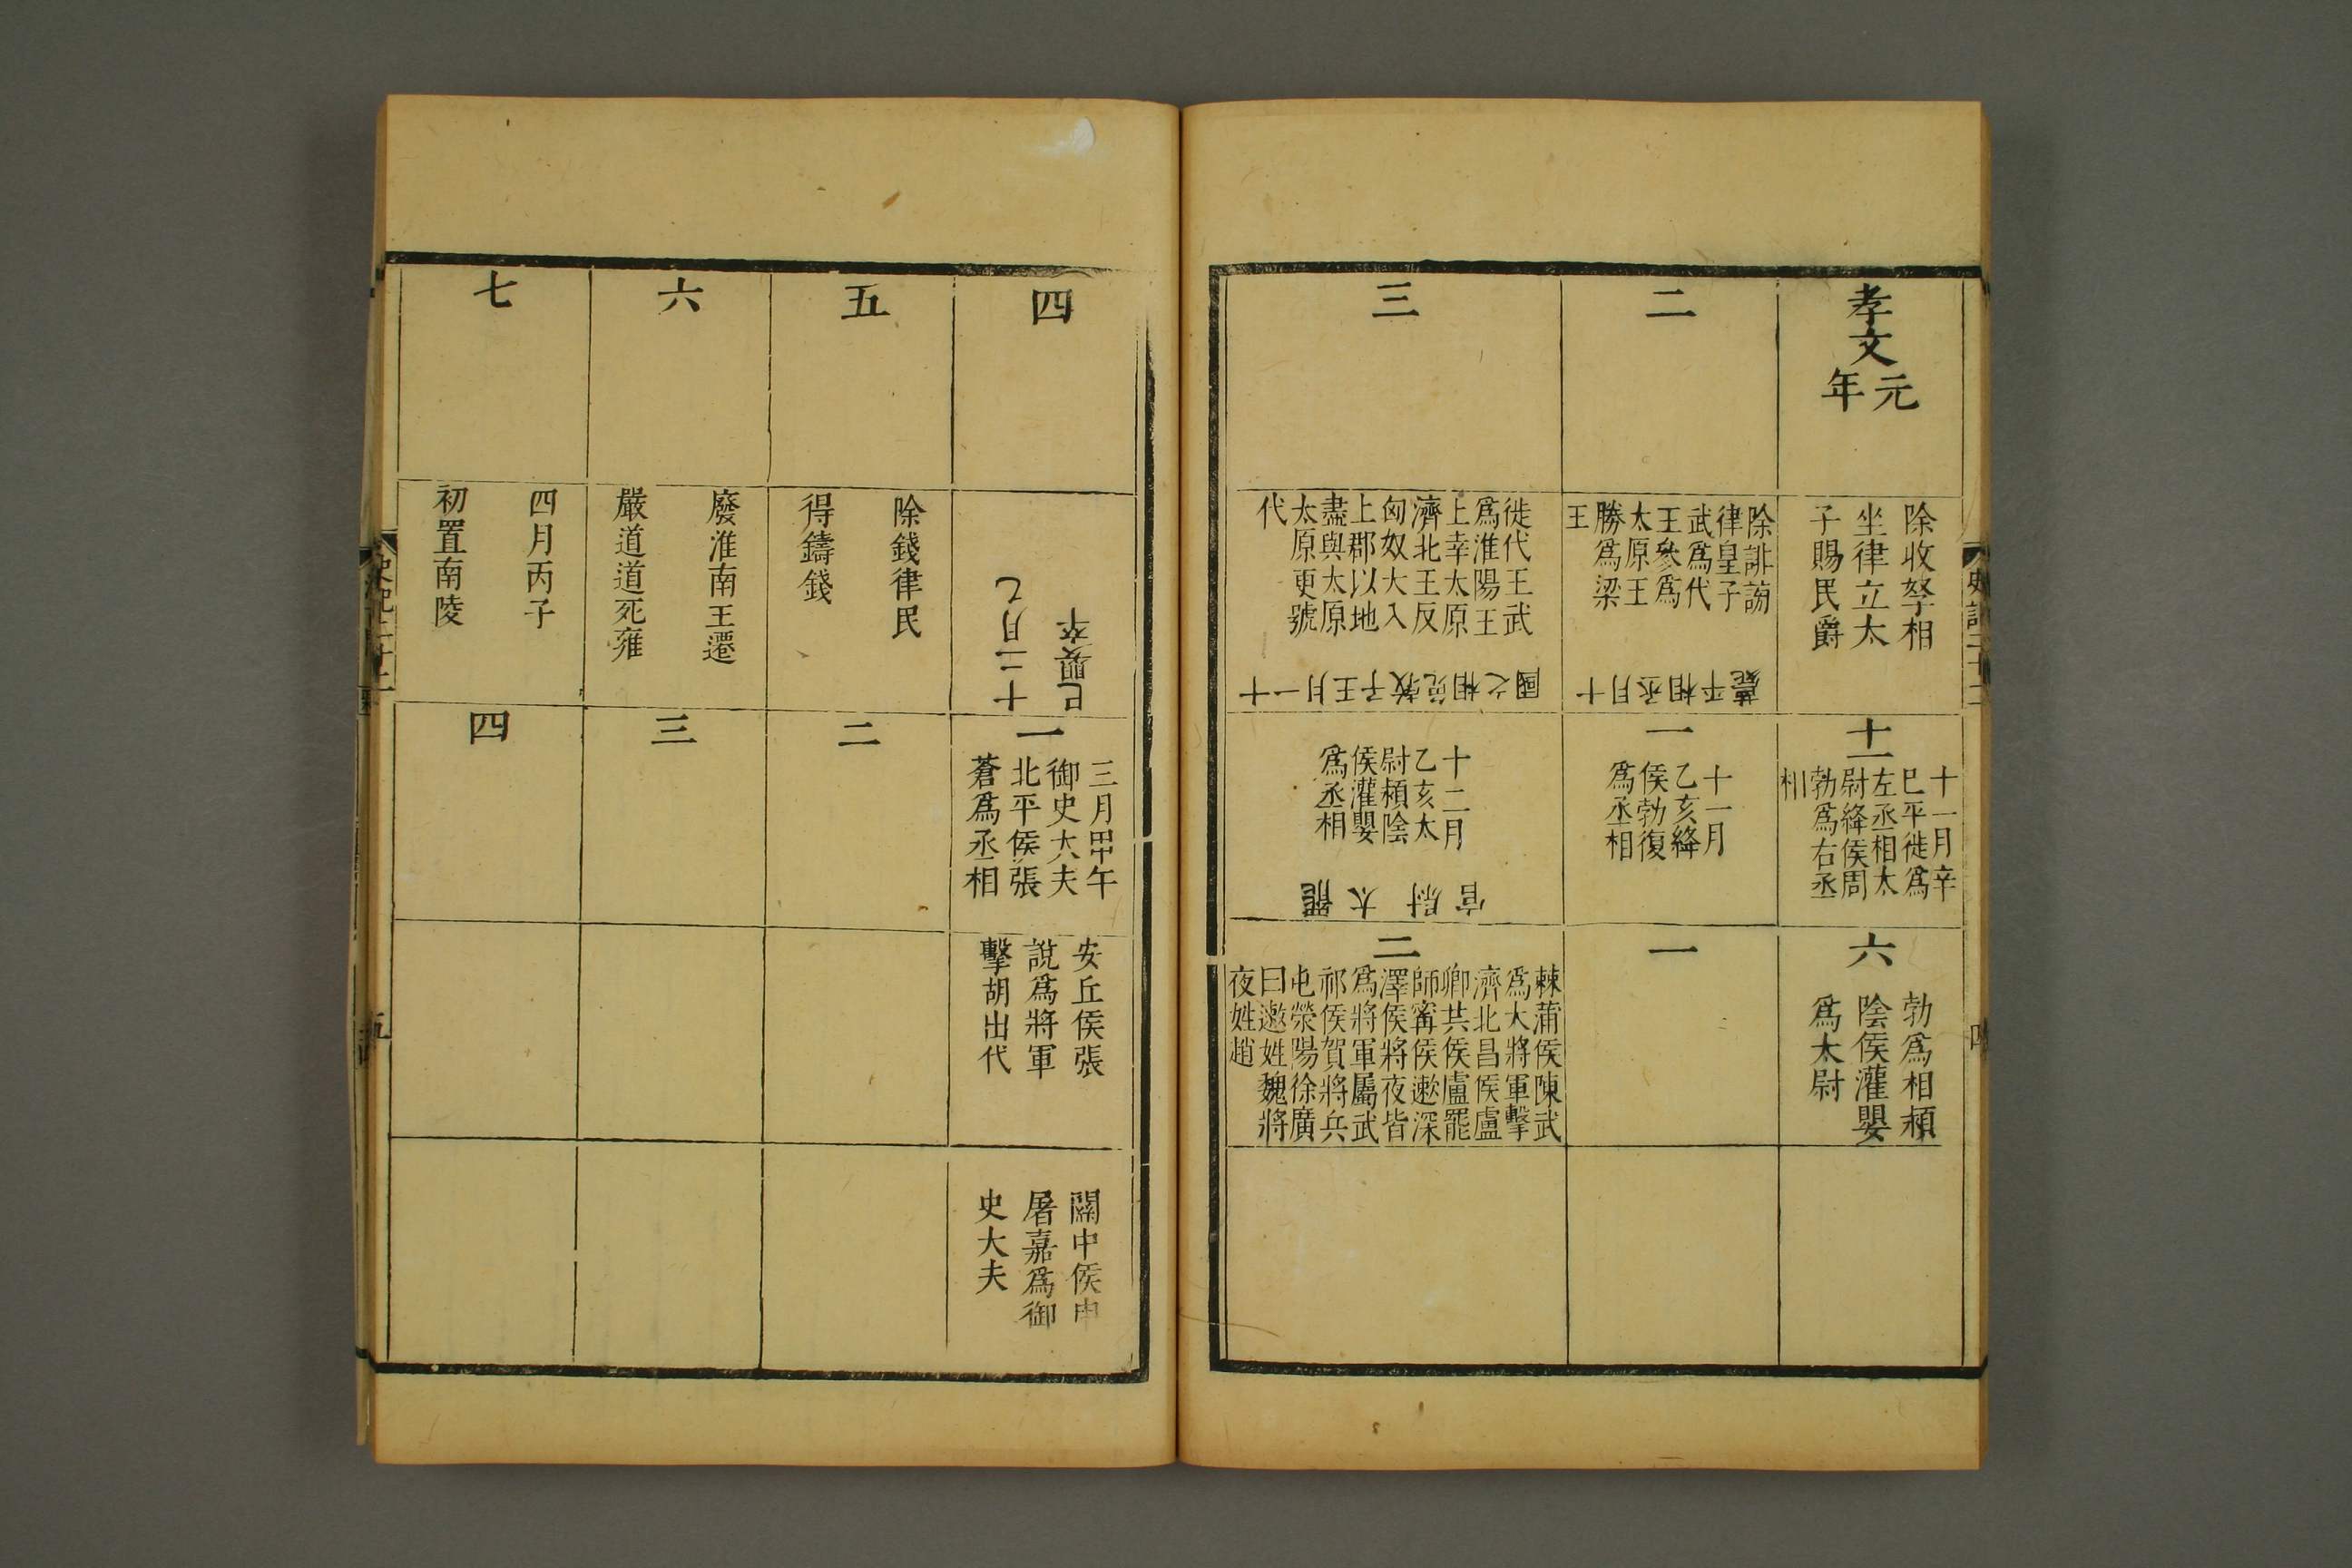 孝文
元
年
除收孥相
坐律立太
子賜民爵
十一
十一月辛
巳平徙爲
左丞相太
尉絳侯周
勃爲右丞
相
六
勃爲相潁
陰侯灌嬰
爲太尉
二
除誹謗
律皇子
武爲代
王參爲
太原王
勝爲梁
王
十月丞相平薨
一
十一月
乙亥絳
侯勃復
爲丞相
一
三
徙代王武
爲淮陽王
上幸太原
濟北王反
匈奴大入
上郡以地
盡與太原
太原更號
代
十一月王子敖免相之國
十二月
乙亥太
尉潁陰
侯灌嬰
爲丞相
罷太尉官
二
棘蒲侯陳武
爲大將軍擊
濟北昌侯盧
卿共侯盧罷
師甯侯遫深
澤侯將夜皆
爲將軍屬武
祁侯賀將兵
屯滎陽徐廣
曰遫姓魏將
夜姓趙
史記二十二
四
十二月乙
巳嬰卒
一
三月甲午
御史大夫
北平侯張
蒼爲丞相
安丘侯張
說爲將軍
擊胡出代
關中侯申
屠嘉爲御
史大夫
五
除錢律民
得鑄錢
二
六
廢淮南王遷
嚴道道死雍
三
七
四月丙子
初置南陵
四
史記二十二
五